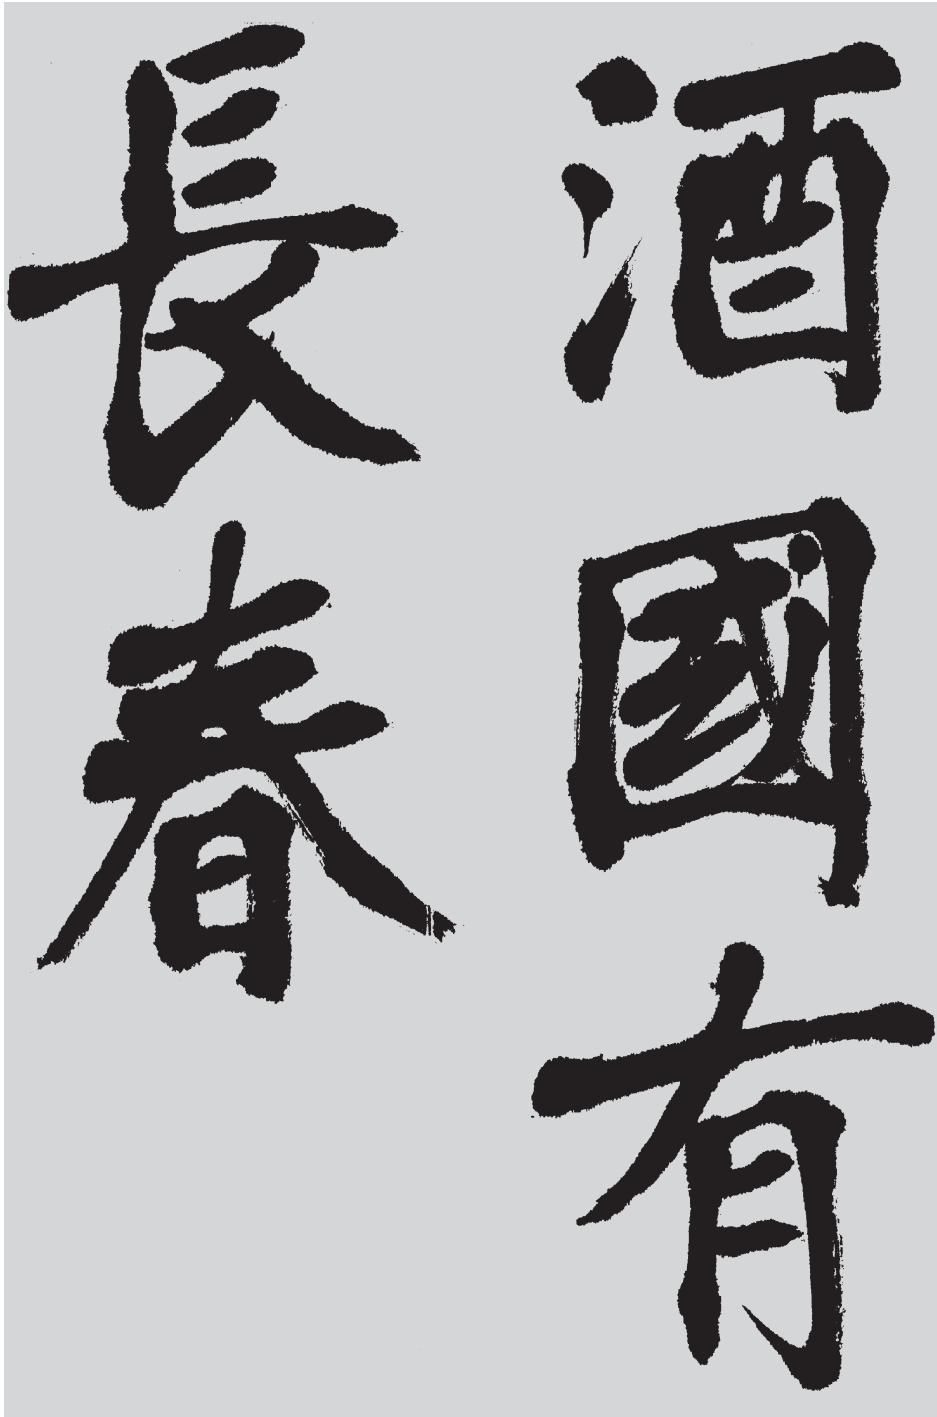 酒國有
長春